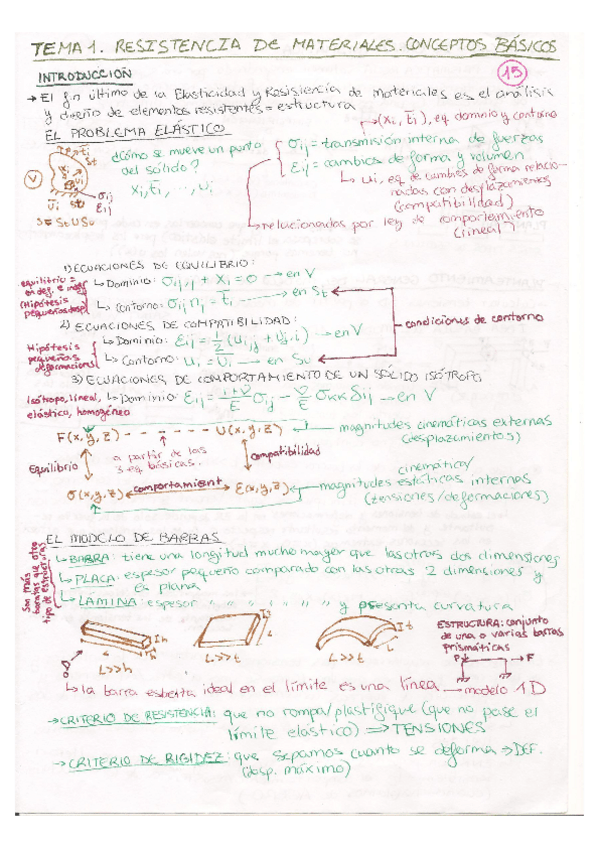 TEMA 1. RESISTENCIA DE MATERIALES. CONCEPTOS BÁSICOS
15
INTRODUCCIÓN
→ El fin último de la Elasticidad y Resistencia de materiales es el análisis
y diseño de elementos resistentes = estructura
(xi, t̄i), eq dominio y contorno
EL PROBLEMA ELÁSTICO
¿Cómo se mueve un punto
del sólido?
xi, t̄i, ..., ui
σij = transmisión interna de fuerzas
εij = cambios de forma y volumen
ui, eq de cambios de forma relacio-
nadas con desplazamientos
(compatibilidad)
relacionados por ley de comportamiento
(lineal)
V
t̄i
St
σij
εij
ūi
Su
S = St U Su
1) ECUACIONES DE EQUILIBRIO:
Dominio: σij,j + Xi = 0 → en V
Contorno: σij nj = t̄i → en St
(Hipótesis
2) ECUACIONES DE COMPATIBILIDAD:
condiciones de contorno
Hipótesis
pequeñas
deformaciones
Dominio: εij = 1/2 (ui,j + uj,i) → en V
Contorno: ui = ūi → en Su
3) ECUACIONES DE COMPORTAMIENTO DE UN SÓLIDO ISÓTROPO
Isótropo, lineal,
elástico, homogéneo
Dominio: εij = 1+ν/E σij - ν/E σkk δij → en V
F(x,y,z) - - - - - - - U(x,y,z)
magnitudes cinemáticas externas
(desplazamientos)
Equilibrio
a partir de las
3 eq. básicas.
compatibilidad
σ(x,y,z) comportament ε(x,y,z)
cinemática/
magnitudes estáticas internas
(tensiones/deformaciones)
EL MODELO DE BARRAS
Son más
baratas que otro
tipo de estructuras
BARRA: tiene una longitud mucho mayor que las otras dos dimensiones
PLACA: espesor pequeño comparado con las otras 2 dimensiones y
es plana
LÁMINA: espesor " " " " " " y presenta curvatura
ESTRUCTURA: conjunto
de una o varias barras
prismáticas
h
h
L
L>>h
t
L
L>>t
t
L
L>>t
P
F
la barra esbelta ideal en el límite es una línea → modelo 1D
→ CRITERIO DE RESISTENCIA: que no rompa/plastifique (que no pase el
límite elástico) ⇒ TENSIONES
→ CRITERIO DE RIGIDEZ: que sepamos cuanto se deforma ⇒ DEF.
(desp. máximo)